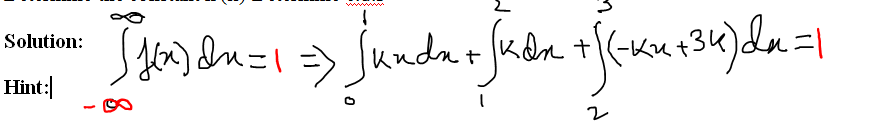 Solution: ∫_{-∞}^{∞} f(x) dx = 1 ⇒ ∫_0^1 kx dx + ∫_1^2 k dx + ∫_2^3 (-kx + 3k) dx = 1
Hint: